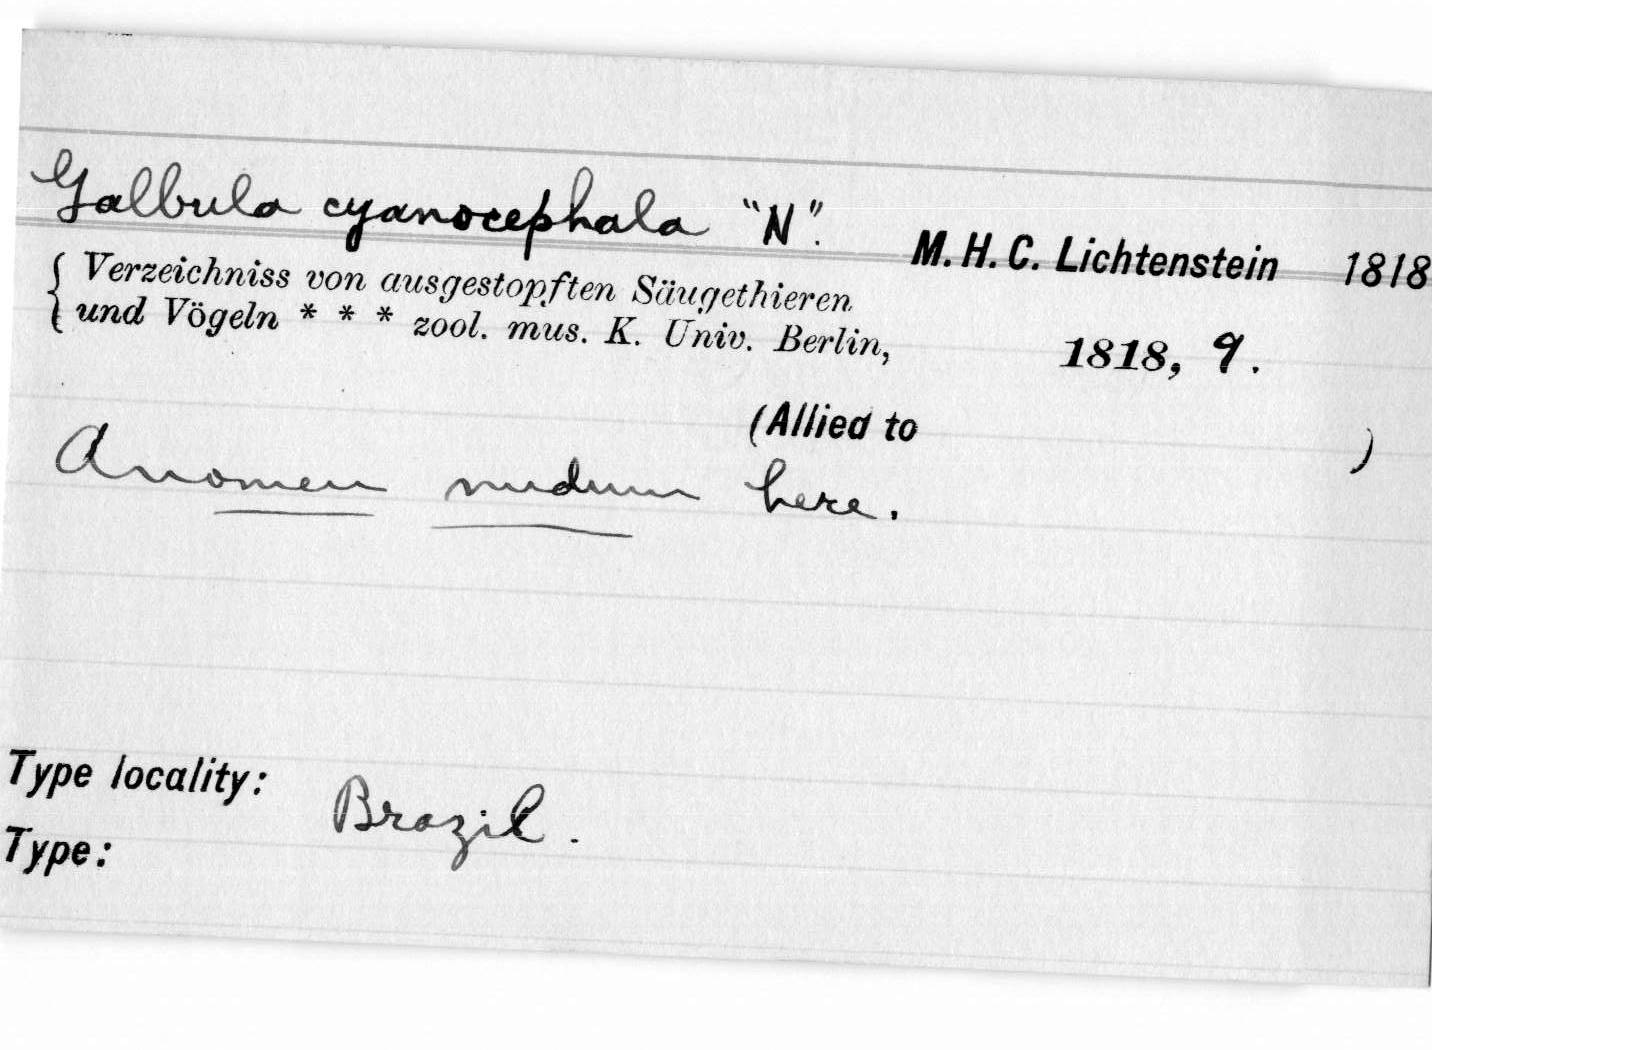 Galbula cyanocephala "N". M. H. C. Lichtenstein 1818
Verzeichniss von ausgestopften Säugethieren
und Vögeln * * * zool. mus. K. Univ. Berlin, 1818, 9.
(Allied to )
A nomen nudum here.
Type locality: Brazil.
Type: